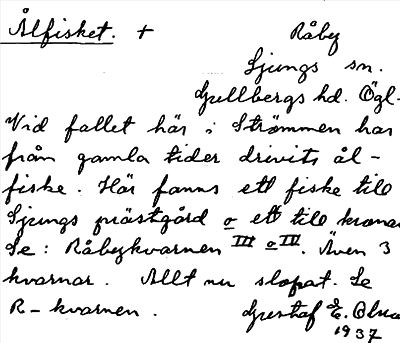 Ålfisket. +
Råby
Ljungs sn.
Gullbergs hd. Ögl.
Vid fallet här i Strömmen har
från gamla tider drivits ål-
fiske. Här fanns ett fiske till
Ljungs prästgård o ett till kronan
Se: Råbykvarnen III o IV. Även 3
kvarnar. Allt nu slopat. Se
R-kvarnen.
Gustaf E.
1937